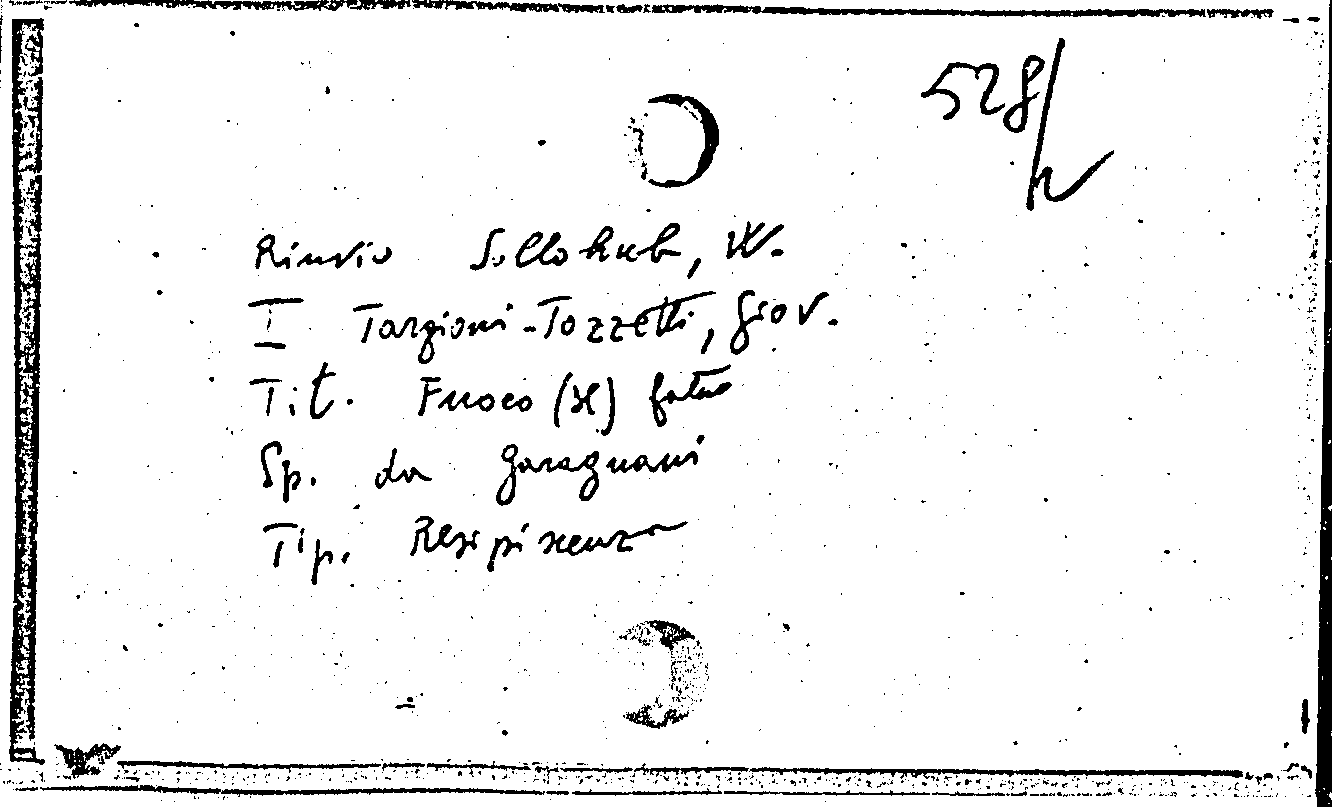 528/
Rinvio Sollohub, W.
I Targioni-Tozzetti, Giov.
Tit. Fuoco (Il) fatuo
Sp. da Garagnani
Tip. Resipiscenza